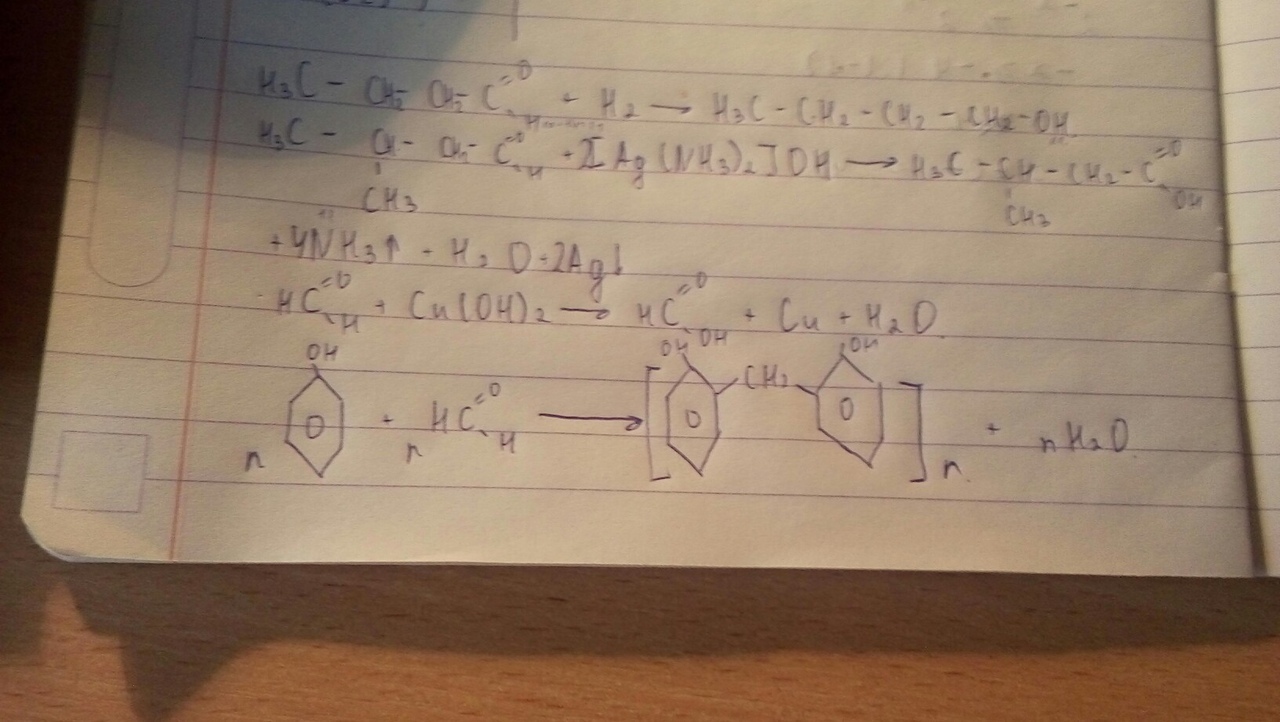 H₃C – CH₂ CH₂ C =O H + H₂ → H₃C – CH₂ – CH₂ – CH₂ – OH
H₃C – CH – CH₂ – C =O H + 2[Ag(NH₃)₂]OH → H₃C – CH – CH₂ – C =O OH
CH₃ CH₃
+ 4NH₃↑ + H₂O + 2Ag↓
HC =O H + Cu(OH)₂ → HC =O OH + Cu + H₂O
OH OH OH
n + n HC =O H → [ CH₂ ]n + nH₂O